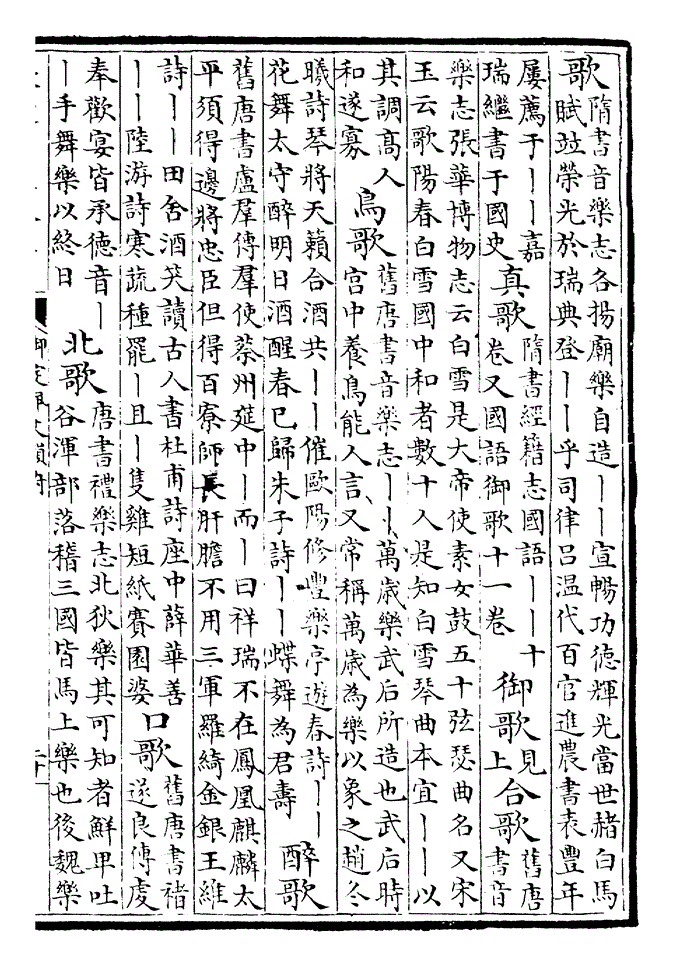 歌隋書音樂志各揚廟樂自造丨丨宣暢功德輝光當世赭白馬
賦竝榮光於瑞典登丨丨乎司律呂温代百官進農書表豐年
屢薦于丨丨嘉
瑞繼書于國史
真歌
隋書經籍志國語丨丨十
卷又國語御歌十一卷
御歌
見
上
合歌
舊唐
書音
樂志張華博物志云白雪是大帝使素女鼓五十弦瑟曲名又宋
玉云歌陽春白雪國中和者數十人是知白雪琴曲本宜丨丨以
其調高人
和遂寡
鳥歌
舊唐書音樂志丨丨萬歲樂武后所造也武后時
宫中養鳥能人言又常稱萬歲為樂以象之趙冬
曦詩琴將天籟合酒共丨丨催歐陽修豐樂亭遊春詩丨丨
花舞太守醉明日酒醒春已歸朱子詩丨丨蝶舞為君壽
醉歌
舊唐書盧羣傳羣使蔡州筵中丨而丨曰祥瑞不在鳳凰麒麟太
平須得邊將忠臣但得百寮師長肝膽不用三軍羅綺金銀王維
詩丨丨田舍酒笑讀古人書杜甫詩座中薛華善
丨丨陸游詩寒蔬種罷丨且丨隻雞短紙賽園婆
口歌
舊唐書褚
遂良傳虔
奉歡宴皆承德音丨
丨手舞樂以終日
北歌
唐書禮樂志北狄樂其可知者鮮卑吐
谷渾部落稽三國皆馬上樂也後魏樂